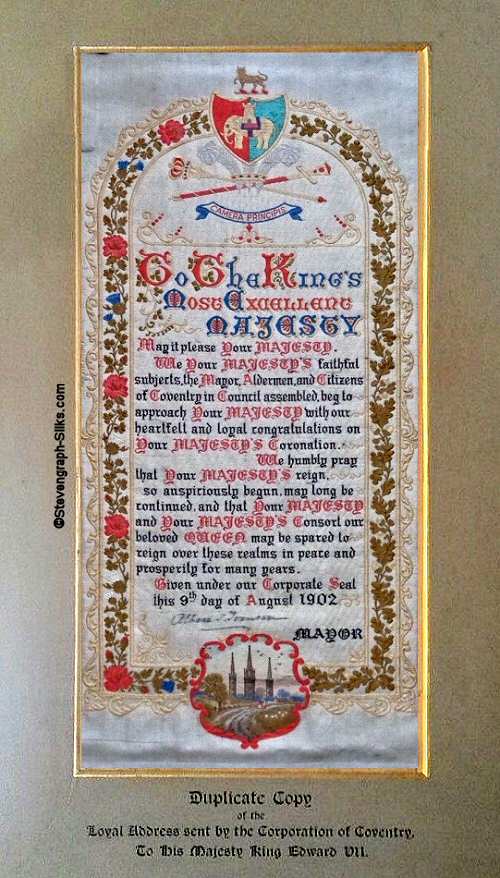 CAMERA PRINCIPIS
To The King's
Most Excellent
MAJESTY
May it please Your MAJESTY.
We Your MAJESTY'S faithful
subjects, the Mayor, Aldermen, and Citizens
of Coventry in Council assembled, beg to
approach Your MAJESTY with our
heartfelt and loyal congratulations on
Your MAJESTY'S Coronation.
We humbly pray
that Your MAJESTY'S reign,
so auspiciously begun, may long be
continued, and that Your MAJESTY
and Your MAJESTY'S Consort our
beloved QUEEN may be spared to
reign over these realms in peace and
prosperity for many years.
Given under our Corporate Seal
this 9th day of August 1902
MAYOR
Duplicate Copy
of the
Loyal Address sent by the Corporation of Coventry,
To His Majesty King Edward VII.
©Stevengraph-Silks.com